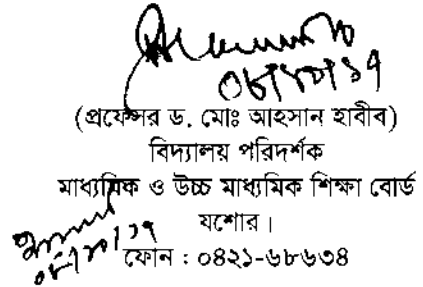 ০৮/১০/১৭
(প্রফেসর ড. মোঃ আহসান হাবীব)
বিদ্যালয় পরিদর্শক
মাধ্যমিক ও উচ্চ মাধ্যমিক শিক্ষা বোর্ড
যশোর।
ফোন : ০৪২১-৬৮৬৩৪